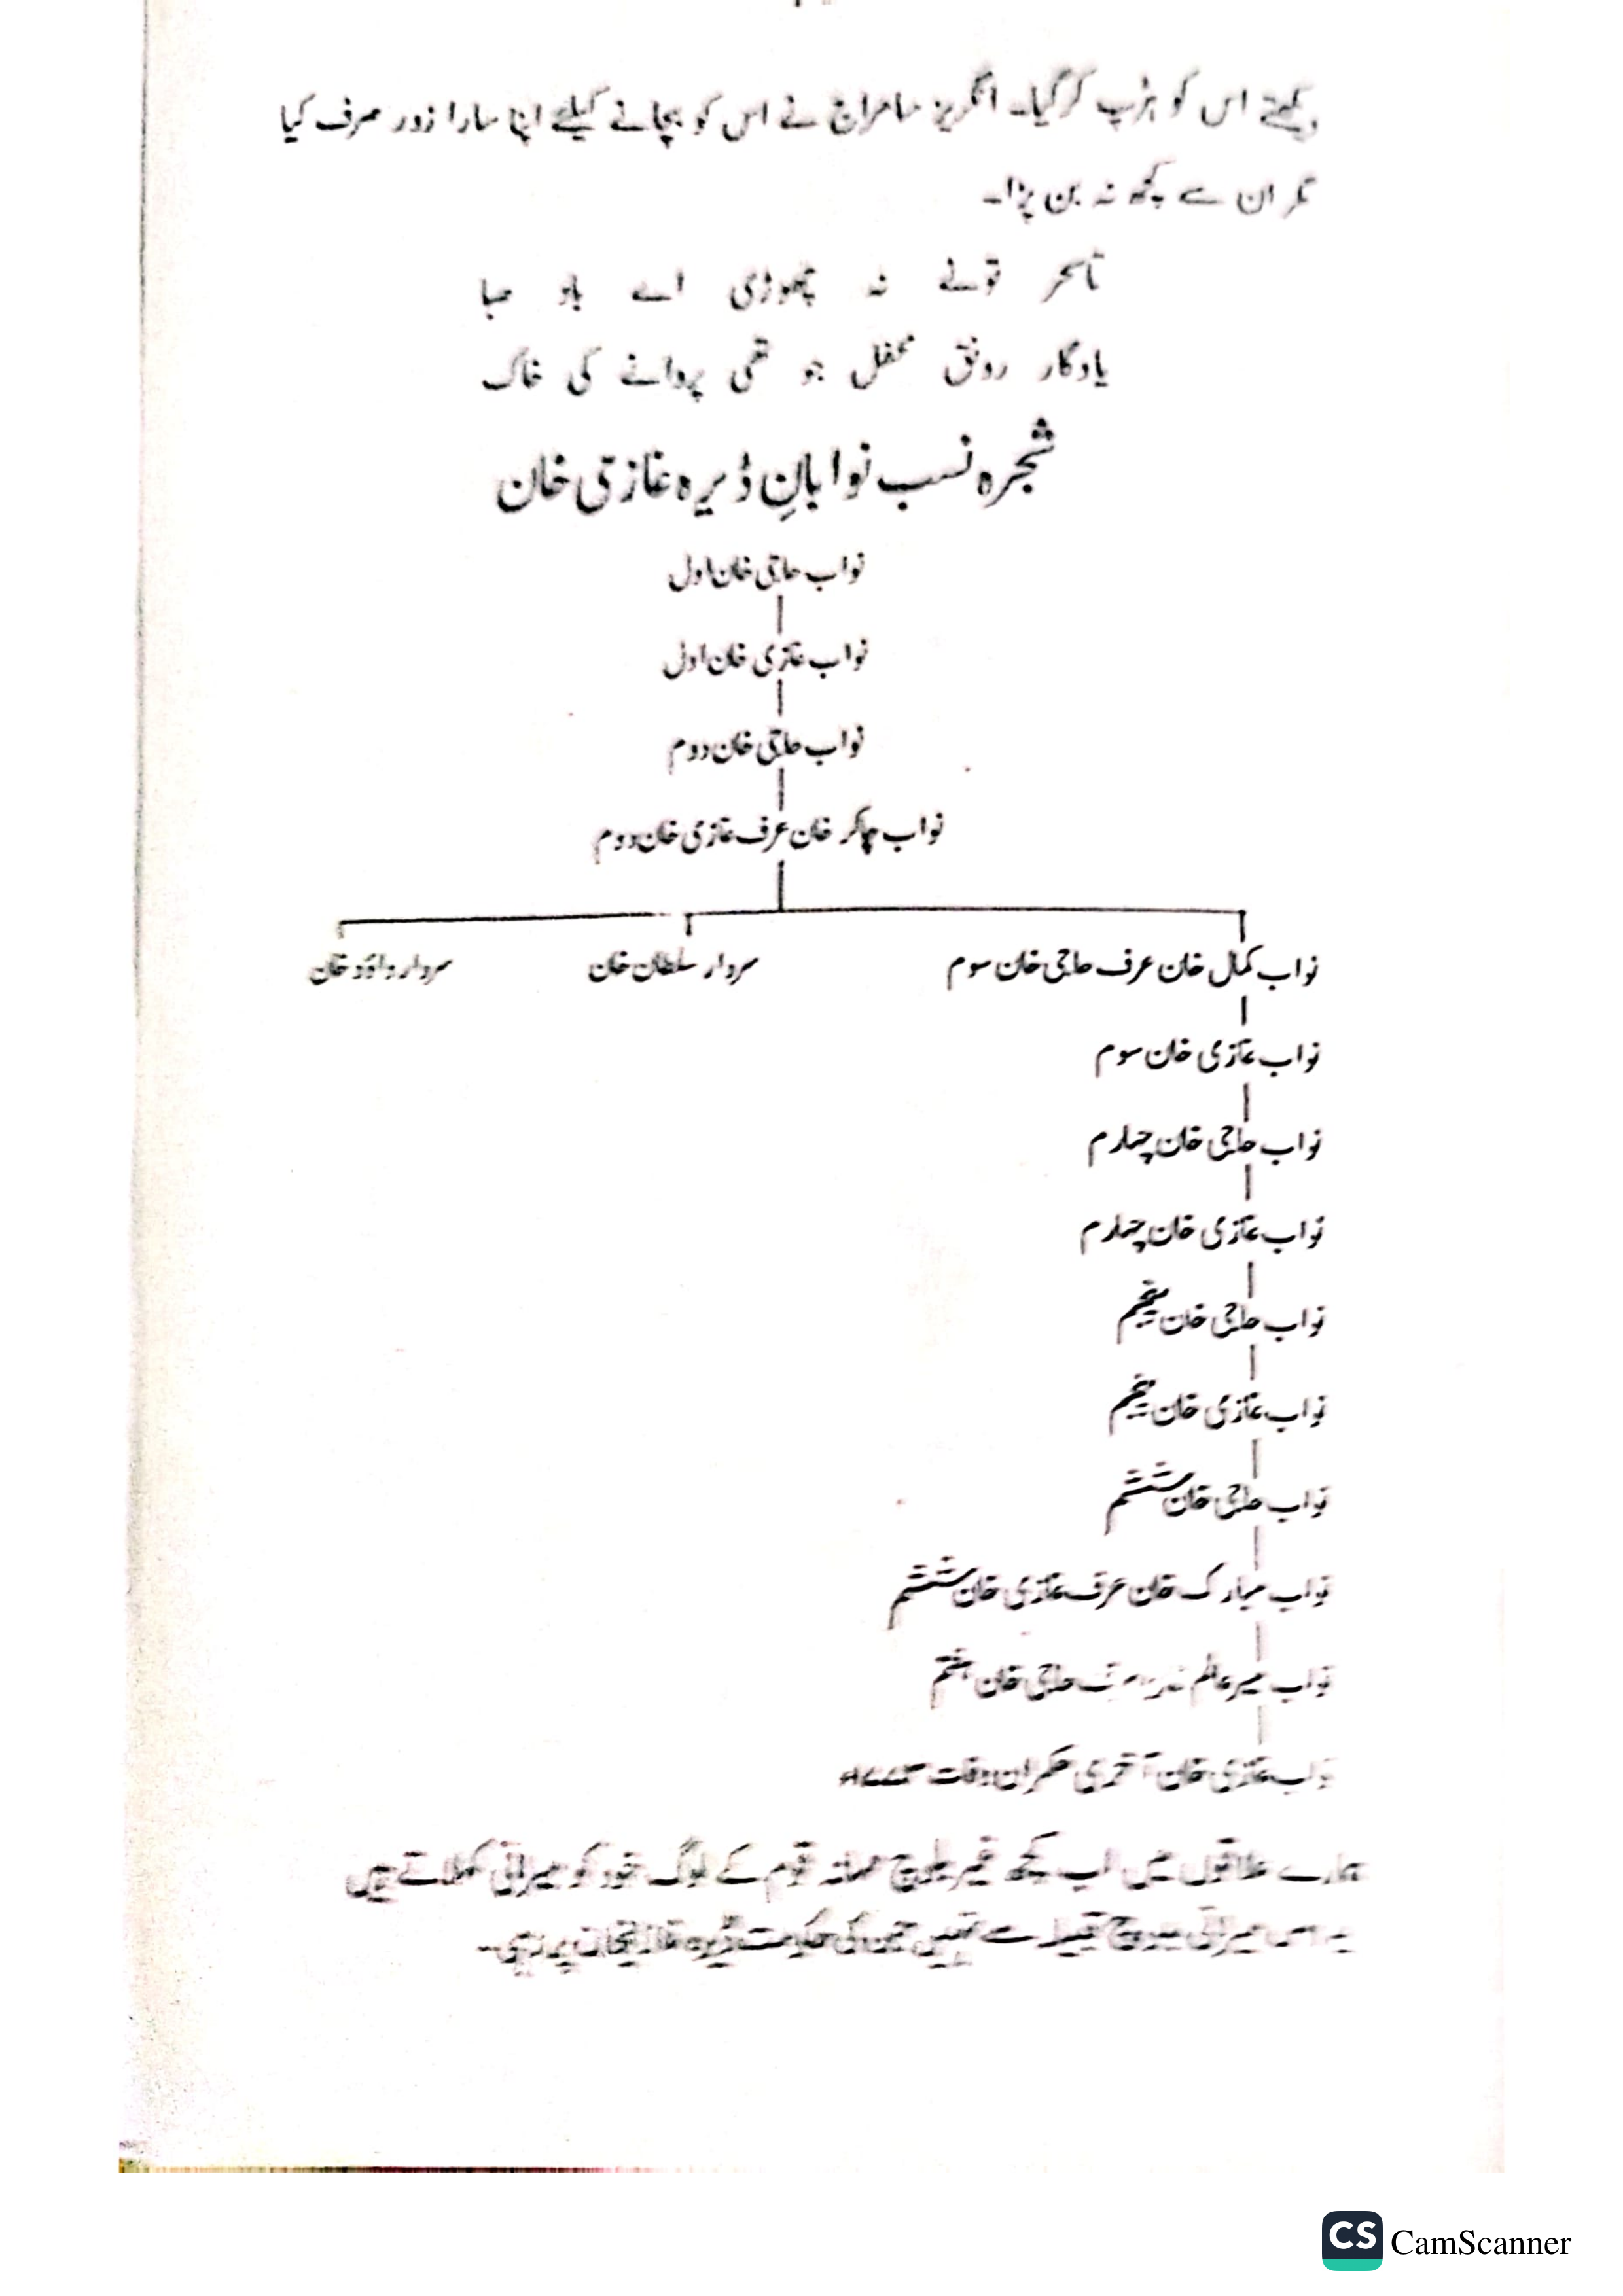 دیکھتے اس کو ہڑپ کر گیا۔ انگریز سامراج نے اس کو بچانے کیلئے اپنا سارا زور صرف کیا
مگر ان سے کچھ نہ بن پڑا۔
تاسحر تونے نہ چھوڑی اے باد صبا
یادگار رونق محفل جو تھی پروانے کی خاک
شجرہ نسب نوابانِ ڈیرہ غازی خان
نواب حاجی خان اول
نواب غازی خان اول
نواب حاجی خان دوم
نواب چاکر خان عرف غازی خان دوم
نواب کمال خان عرف حاجی خان سوم
سردار سلطان خان
سردار داؤد خان
نواب غازی خان سوم
نواب حاجی خان چہارم
نواب غازی خان چہارم
نواب حاجی خان پنجم
نواب غازی خان پنجم
نواب حاجی خان ششم
نواب مبارک خان عرف غازی خان ششم
نواب میر عالم عرف حاجی خان ہفتم
نواب غازی خان آخری حکمران وفات
ہمارے علاقوں میں اب کچھ غیر بلوچ قوم کے لوگ خود کو میرانی کہلاتے ہیں
یہ اس میرانی بلوچ قبیلہ سے نہیں جن کی حکومت ڈیرہ غازیخان پر رہی۔
CS CamScanner